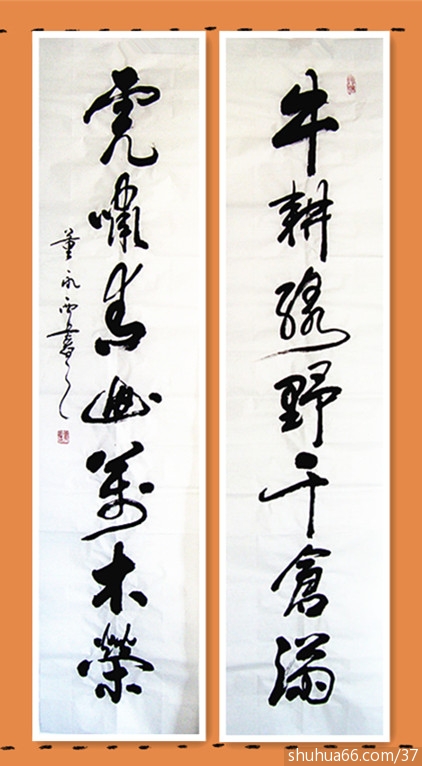 牛耕綠野千倉滿
虎嘯青山萬木榮
董永西書
shuhua66.com/37